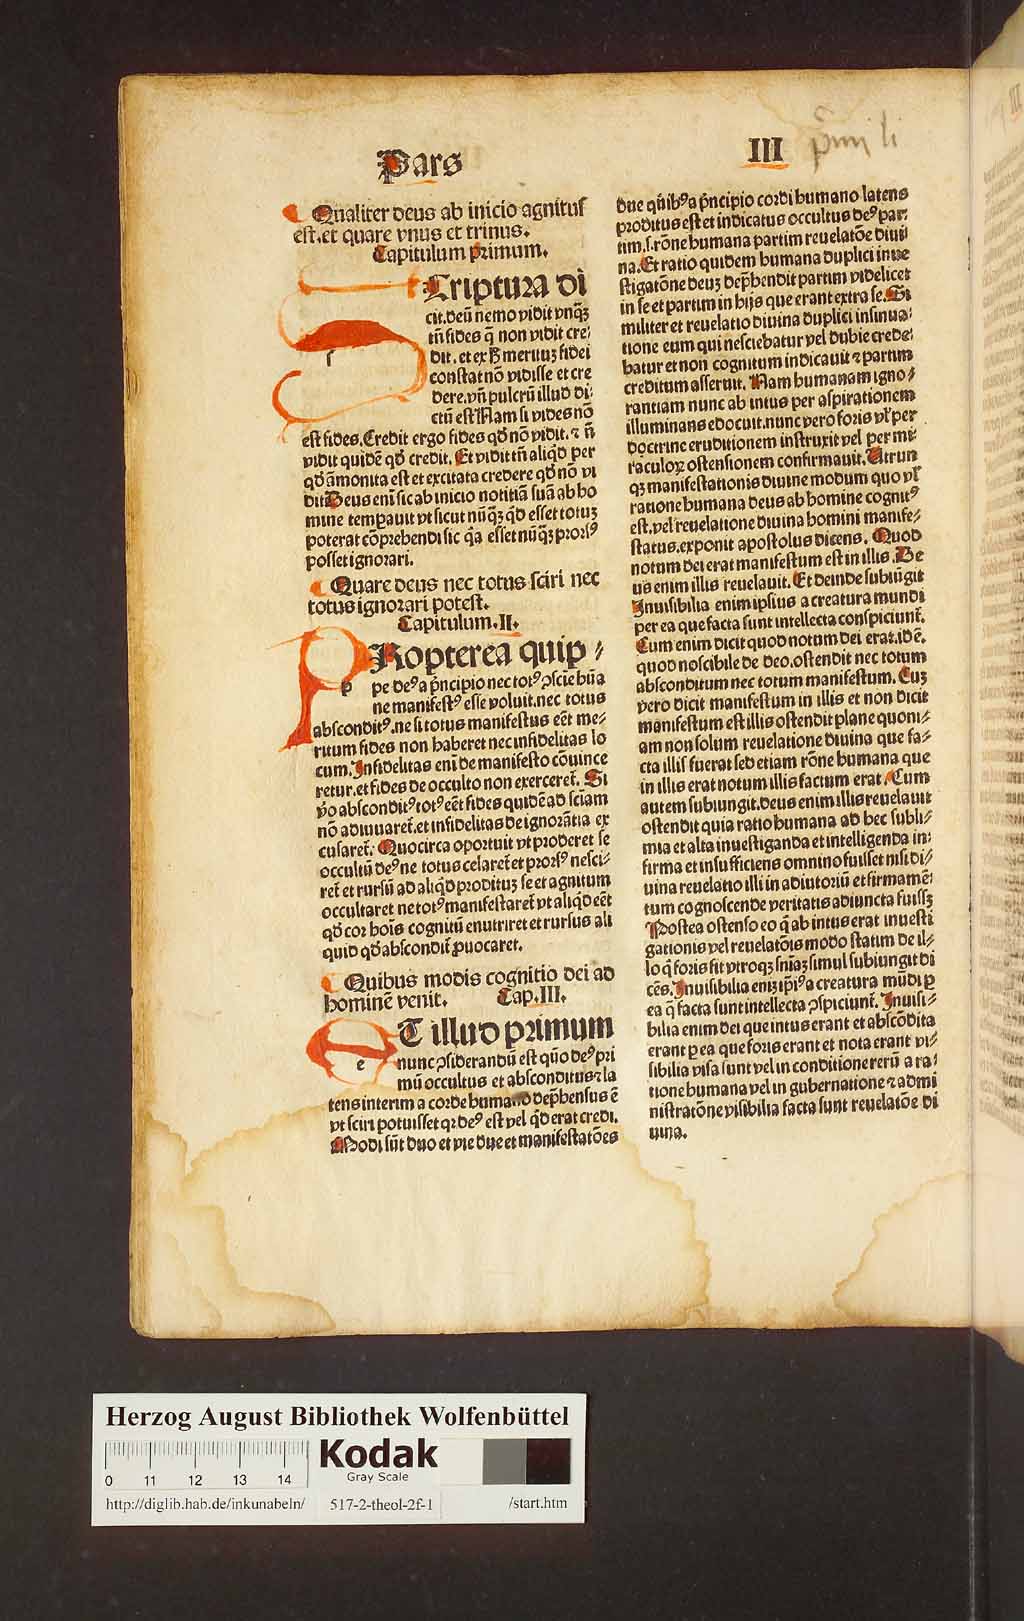 Pars
III
Qualiter deus ab inicio agnitus
est.et quare vnus et trinus.
Capitulum primum.
Scriptura di
cit.deū nemo vidit vnq̄ꝫ
tñ fides q̄ non vidit cre⸗
dit.et ex ħ merituꝫ fidei
constat nō vidisse et cre
dere.vñ pulcrū illud di⸗
ctū est Nam si vides nō
est fides.Credit ergo fides qđ nō vidit.⁊ ñ
vidit quidē qđ credit. Et vidit tñ aliqđ per
qđ āmonita est et excitata credere qđ nō vi
dit Deus eni sic ab inicio notitiā suā ab ho
mine temperauit vt sicut nūq̄ꝫ qđ esset totuꝫ
poterat cōprehendi sic q̄a esset nūq̄ꝫ prorsꝰ
posset ignorari.
Quare deus nec totus sciri nec
totus ignorari potest.
Capitulum.II.
PRopterea quip⸗
p pe deꝰ a p̄ncipio nec totꝰ ꝯscie hūa
ne manifestꝰ esse voluit.nec totus
absconditꝰ.ne si totus manifestus eēt me⸗
ritum fides non haberet nec infidelitas lo
cum.Infidelitas eni de manifesto cōuince
retur.et fides de occulto non exerceret̄. Si
v̄o absconditꝰ totꝰ eēt fides quidē ad sciam
nō adiuuaret̄.et infidelitas de ignorātia ex
cusaret̄. Quocirca oportuit vt proderet se
occultū deꝰ ne totus celaret̄ et prorsꝰ nesci⸗
ret̄ et rursū ad aliqđ prodituꝫ se et agnitum
occultaret ne totꝰ manifestaret̄ vt aliqđ eēt
qđ cor hois cognitū enutriret et rursus ali
quid qđ abscondit̄ ꝓuocaret.
Quibus modis cognitio dei ad
hominē venit. Cap.III.
ET illud primum
e nunc ꝯsiderandū est quō deꝰ pri
mū occultus et absconditus ⁊ la
tens interim a corde humano dep̄hensus ē
vt sciri potuisset qꝛ deꝰ est vel qđ erat credi.
Modi sūt duo et vie due et manifestatōes
due quibꝰ a p̄ncipio cordi humano latens
proditus est et indicatus occultus deꝰ par⸗
tim.s.rōne humana partim reuelatōe diui
na.Et ratio quidem humana duplici inue
stigatōne deuꝫ dep̄hendit partim videlicet
in se et partim in hijs que erant extra se. Si
militer et reuelatio diuina duplici insinua⸗
tione eum qui nesciebatur vel dubie crede⸗
batur et non cognitum indicauit ⁊ partim
creditum asseruit. Nam humanam igno⸗
rantiam nunc ab intus per aspirationem
illuminans edocuit.nunc vero foris vl̄ per
doctrine eruditionem instruxit vel per mi⸗
raculoꝝ ostensionem confirmauit. Utrun
qꝫ manifestationis diuine modum quo vl̄
ratione humana deus ab homine cognitꝰ
est.vel reuelatione diuina homini manife⸗
status.exponit apostolus dicens. Quod
notum dei erat manifestum est in illis.De
us enim illis reuelauit. Et deinde subiūgit
Inuisibilia enim ipsius a creatura mundi
per ea que facta sunt intellecta conspiciunt̄.
Cum enim dicit quod notum dei erat.id ē.
quod noscibile de deo.ostendit nec totum
absconditum nec totum manifestum. Cuꝫ
vero dicit manifestum in illis et non dicit
manifestum est illis ostendit plane quoni⸗
am non solum reuelatione diuina que fa⸗
cta illis fuerat sed etiam rōne humana que
in illis erat notum illis factum erat. Cum
autem subiungit.deus enim illis reuelauit
ostendit quia ratio humana ad hec subli⸗
mia et alta inuestiganda et intelligenda in⸗
firma et insufficiens omnino fuisset nisi di⸗
uina reuelatio illi in adiutoriū et firmamē⸗
tum cognoscende veritatis adiuncta fuissꝫ
Postea ostenso eo q̄ ab intus erat inuesti
gationis vel reuelatōis modo statim de il⸗
lo q̄ foris fit vtroqꝫ sniaꝫ simul subiungit di
cēs. Inuisibilia eniꝫ ip̄iꝰ a creatura mūdi p
ea q̄ facta sunt intellecta ꝯspiciunt̄. Inuisi⸗
bilia enim dei que intus erant et abscōdita
erant ꝑ ea que foris erant et nota erant vi⸗
sibilia visa sunt vel in conditione rerū a ra⸗
tione humana vel in gubernatione ⁊ admi
nistratōne visibilia facta sunt reuelatōe di
uina.
Herzog August Bibliothek Wolfenbüttel
0 11 12 13 14
Kodak
Gray Scale
http://diglib.hab.de/inkunabeln/ 517-2-theol-2f-1 /start.htm